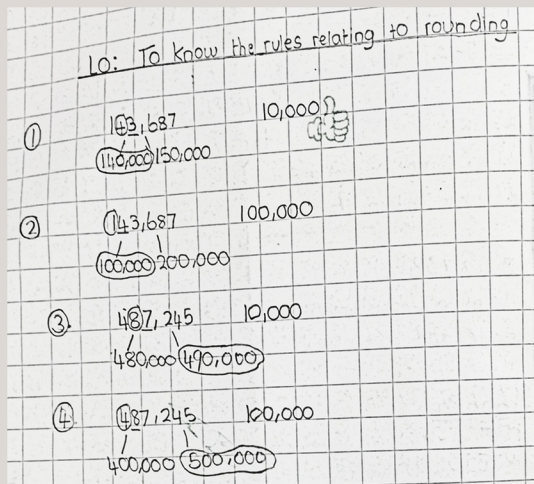 LO: To Know the rules relating to rounding
① 143,687 10,000
140,000 150,000
② 143,687 100,000
100,000 200,000
③ 487,245 10,000
480,000 490,000
④ 487,245 100,000
400,000 500,000